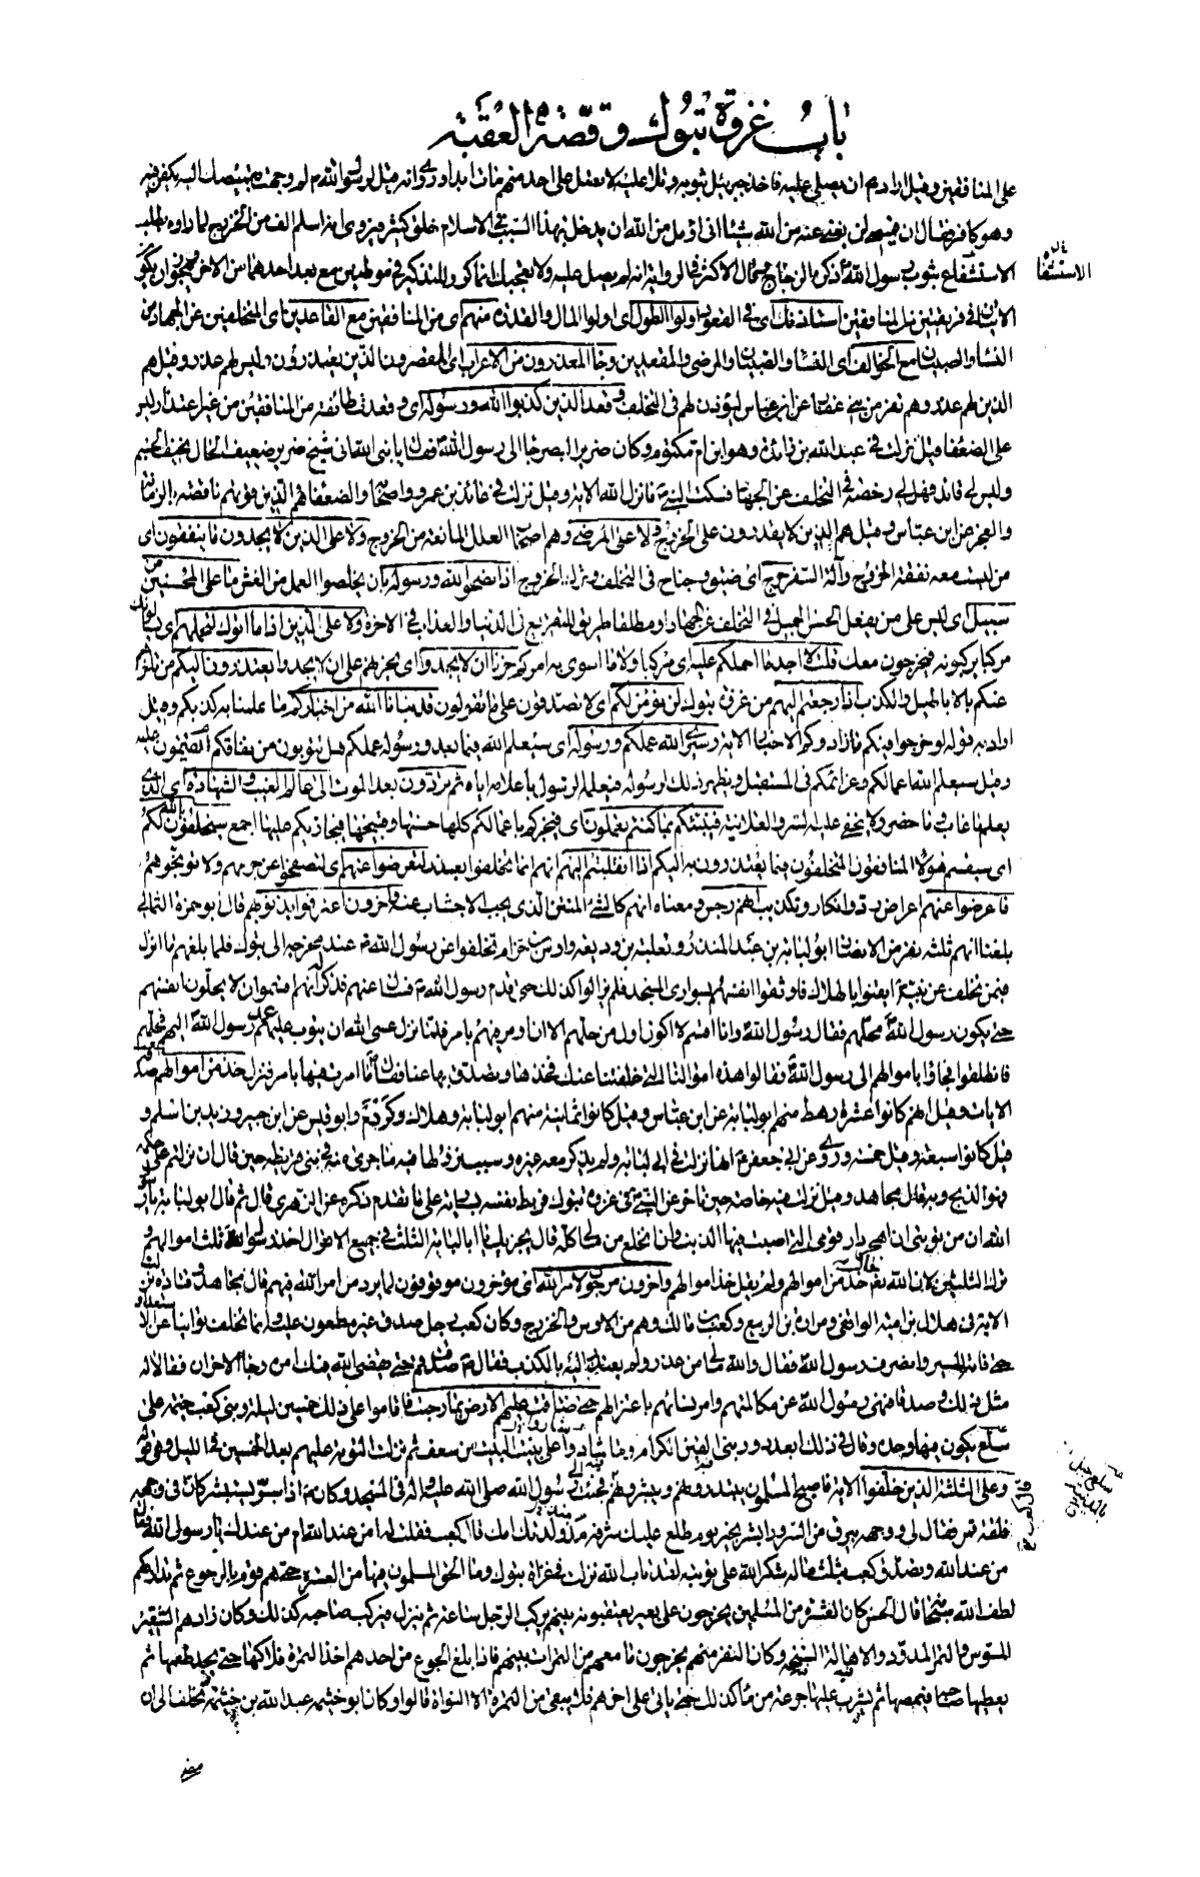 باب غزوة تبوك وقصة العقبة
على المنافقين وقيل اراد ص ان يصلي عليه فاخذ جبرئيل بثوبه وتلا عليه لا تصل على احد منهم مات ابدا وروي انه قيل لرسول الله ص لم وجهت بقميصك اليه يكفن فيه
وهو كافر فقال ان قميصي لن يغني عنه من الله شيئا اني اؤمل من الله ان يدخل بهذا السبب في الاسلام خلق كثير فيروى انه اسلم الف من الخزرج لما راوه يطلب
الاستشفاء بثوب رسول الله ذكره الزجاج قال الاكثر في الرواية انه لم يصل عليه ولا تعجبك انما كرر للتذكير في موطنين مع بعد احدهما من الاخر ويجوز ان يكون
الاستشفا
الايتان في فريقين من المنافقين استأذنك اي في القعود اولوا الطول اي اولوا المال والقدرة منهم اي من المنافقين مع القاعدين اي المتخلفين عن الجهاد من
النساء والصبيان مع الخوالف اي النساء والصبيان والمرضى والمقعدين وجاء المعذرون من الاعراب اي المقصرون الذين يعتذرون وليس لهم عذر وقيل هم
الذين لهم عذر وهم نفر من بني غفار عن ابن عباس ليؤذن لهم في التخلف وقعد الذين كذبوا الله ورسوله اي وقعدت طائفة من المنافقين من غير اعتذار ليس
على الضعفاء قيل نزلت في عبد الله بن زائدة وهو ابن ام مكتوم وكان ضرير البصر جاء الى رسول الله فقال يا نبي الله اني شيخ ضرير ضعيف الحال نحيف الجسم
وليس لي قائد فهل لي رخصة في التخلف عن الجهاد فسكت النبي فانزل الله الاية وقيل نزلت في عائذ بن عمرو واصحابه والضعفاء هم الذين قوتهم ناقصة بالزمانة
والعجز عن ابن عباس وقيل هم الذين لا يقدرون على الخروج ولا على المرضى وهم اصحاب العلل المانعة من الخروج ولا على الذين لا يجدون ما ينفقون اي
من ليست معه نفقة الخروج وآلة السفر حرج اي ضيق وجناح في التخلف وترك الخروج اذا نصحوا لله ورسوله بان يخلصوا العمل من الغش ما على المحسنين من
سبيل اي ليس على من يفعل الحسن الجميل في التخلف عن الجهاد او مطلقا طريق للتقريع في الدنيا والعذاب في الاخرة ولا على الذين اذا ما اتوك لتحملهم اي يسألونك
مركبا يركبونه فيخرجون معك قلت لا اجد ما احملكم عليه اي مركبا ولا ما اسوي به امركم حزنا ان لا يجدوا اي يحزنهم على ان لا يجدوا يعتذرون اليكم من تأخرهم
عنكم بالاباطيل والكذب اذا رجعتم اليهم من غزوة تبوك لن نؤمن لكم اي لا نصدقكم على ما تقولون قد نبأنا الله من اخباركم ما علمنا به كذبكم وقيل
اراد به قوله لو خرجوا فيكم ما زادوكم الا خبالا الاية وسيرى الله عملكم ورسوله اي سيعلم الله فيما بعد ورسوله عملكم هل تتوبون من نفاقكم ام تقيمون عليه
وقيل سيعلم الله اعمالكم وعزائمكم في المستقبل ويظهر ذلك لرسوله فيعلمه الرسول باعلامه اياه ثم تردون بعد الموت الى عالم الغيب والشهادة اي الذي
يعلم ما غاب وما حضر ولا يخفى عليه السر والعلانية فينبئكم بما كنتم تعملون اي فيخبركم باعمالكم كلها حسنها وقبيحها فيجازيكم عليها اجمع سيحلفون بالله لكم
اي سيقسم هؤلاء المنافقون المتخلفون فيما يعتذرون به اليكم اذا انقلبتم اليهم انهم انما تخلفوا بعذر لتعرضوا عنهم اي لتصفحوا عن جرمهم ولا توبخوهم
فاعرضوا عنهم اعراض رد وانكار وتكذيب انهم رجس ومعناه انهم كالشيء المنتن الذي يجب الاجتناب عنه وآخرون اعترفوا بذنوبهم قال ابو حمزة الثمالي
بلغنا انهم ثلثة نفر من الانصار ابو لبابة بن عبد المنذر وثعلبة بن وديعة واوس بن حزام تخلفوا عن رسول الله ص عند مخرجه الى تبوك فلما بلغهم ما انزل
فيمن تخلف عن نبيه ايقنوا بالهلاك فاوثقوا انفسهم بسواري المسجد فلم يزالوا كذلك حتى قدم رسول الله ص فسأل عنهم فذكر له انهم اقسموا ان لا يحلون انفسهم
حتى يكون رسول الله محلهم فقال رسول الله وانا اقسم لا اكون اول من حلهم الا ان اومر فيهم بامر فلما نزل عسى الله ان يتوب عليهم عمد رسول الله اليهم فحلهم
فانطلقوا فجاؤا باموالهم الى رسول الله فقالوا هذه اموالنا التي خلفتنا عنك فخذها وتصدق بها عنا فقال ما امرت فيها بامر فنزل خذ من اموالهم صدقة
الايات وقيل انهم كانوا عشرة رهط منهم ابو لبابة عن ابن عباس وقيل كانوا ثمانية منهم ابو لبابة وهلال وكردم وابو قيس عن ابن جبير وزيد بن اسلم و
قيل كانوا سبعة وقيل خمسة وروي عن ابي جعفر انها نزلت في ابي لبابة ولم يذكر معه غيره وسبب نزولها فيه ما جرى منه في بني قريظة حين قال ان نزلتم على حكمه
فهو الذبح وبه قال مجاهد وقيل نزلت فيه خاصة حين تاخر عن النبي في غزوة تبوك فربط نفسه بسارية على ما تقدم ذكره عن الزهري قال ثم قال ابو لبابة يا رسول
الله ان من توبتي ان اهجر دار قومي التي اصبت فيها الذنب وان انخلع من مالي كله قال يجزيك يا ابا لبابة الثلث وفي جميع الاقوال اخذ رسول الله ثلث اموالهم و
ترك الثلثين لان الله تعالى قال خذ من اموالهم ولم يقل خذ اموالهم وآخرون مرجون لامر الله اي مؤخرون موقوفون لما يرد من امر الله فيهم قال مجاهد وقتادة نزلت
الاية في هلال بن امية الواقفي ومرارة بن الربيع وكعب بن مالك وهم من الاوس والخزرج وكان كعب رجل صدق غير مطعون عليه وانما تخلف توانيا عن الاستعداد
حتى فاته المسير وانصرف رسول الله فقال والله ما لي من عذر ولم يعتذر اليه بالكذب فقال ص صدقت قم حتى يقضي الله فيك امره وجاء الاخران فقالا له
مثل ذلك وصدقا فنهى رسول الله عن مكالمتهم وامر نساءهم باعتزالهم حتى ضاقت عليهم الارض بما رحبت فاقاموا على ذلك خمسين ليلة وبنى كعب خيمة على
سلع يكون فيها وحده وقال في ذلك
ثم نزلت التوبة عليهم بعد الخمسين في الليل وهي قوله
وعلى الثلثة الذين خلفوا الاية فاصبح المسلمون يبتدرونهم ويبشرونهم قال كعب فجئت الى رسول الله صلى الله عليه وآله في المسجد وكان ص اذا سر يستبشر كان في وجهه
فلقة قمر فقال لي ووجهه يبرق من السرور ابشر بخير يوم طلع عليك شرفه منذ ولدتك امك قال كعب فقلت له امن عند الله ام من عندك يا رسول الله فقال
من عند الله وتصدق كعب بثلث ماله شكرا لله على توبته لقد تاب الله نزلت في غزاة تبوك وما لحق المسلمون فيها من العسرة حتى هم قوم بالرجوع ثم تداركهم
لطف الله سبحانه قال الحسن كان العشرة من المسلمين يخرجون على بعير يعتقبونه بينهم يركب الرجل ساعة ثم ينزل فيركب صاحبه كذلك وكان زادهم الشعير
المسوس والتمر المدود والاهالة السنخة وكان النفر منهم يخرجون ما معهم من التمرات بينهم فاذا بلغ الجوع من احدهم اخذ التمرة فلاكها حتى يجد طعمها ثم
يعطيها صاحبه فيمصها ثم يشرب عليها جرعة من ماء كذلك حتى ياتي على آخرهم فلا يبقى من التمرة الا النواة قالوا وكان ابو خيثمة عبد الله بن خيثمة تخلف الى ان
مضى